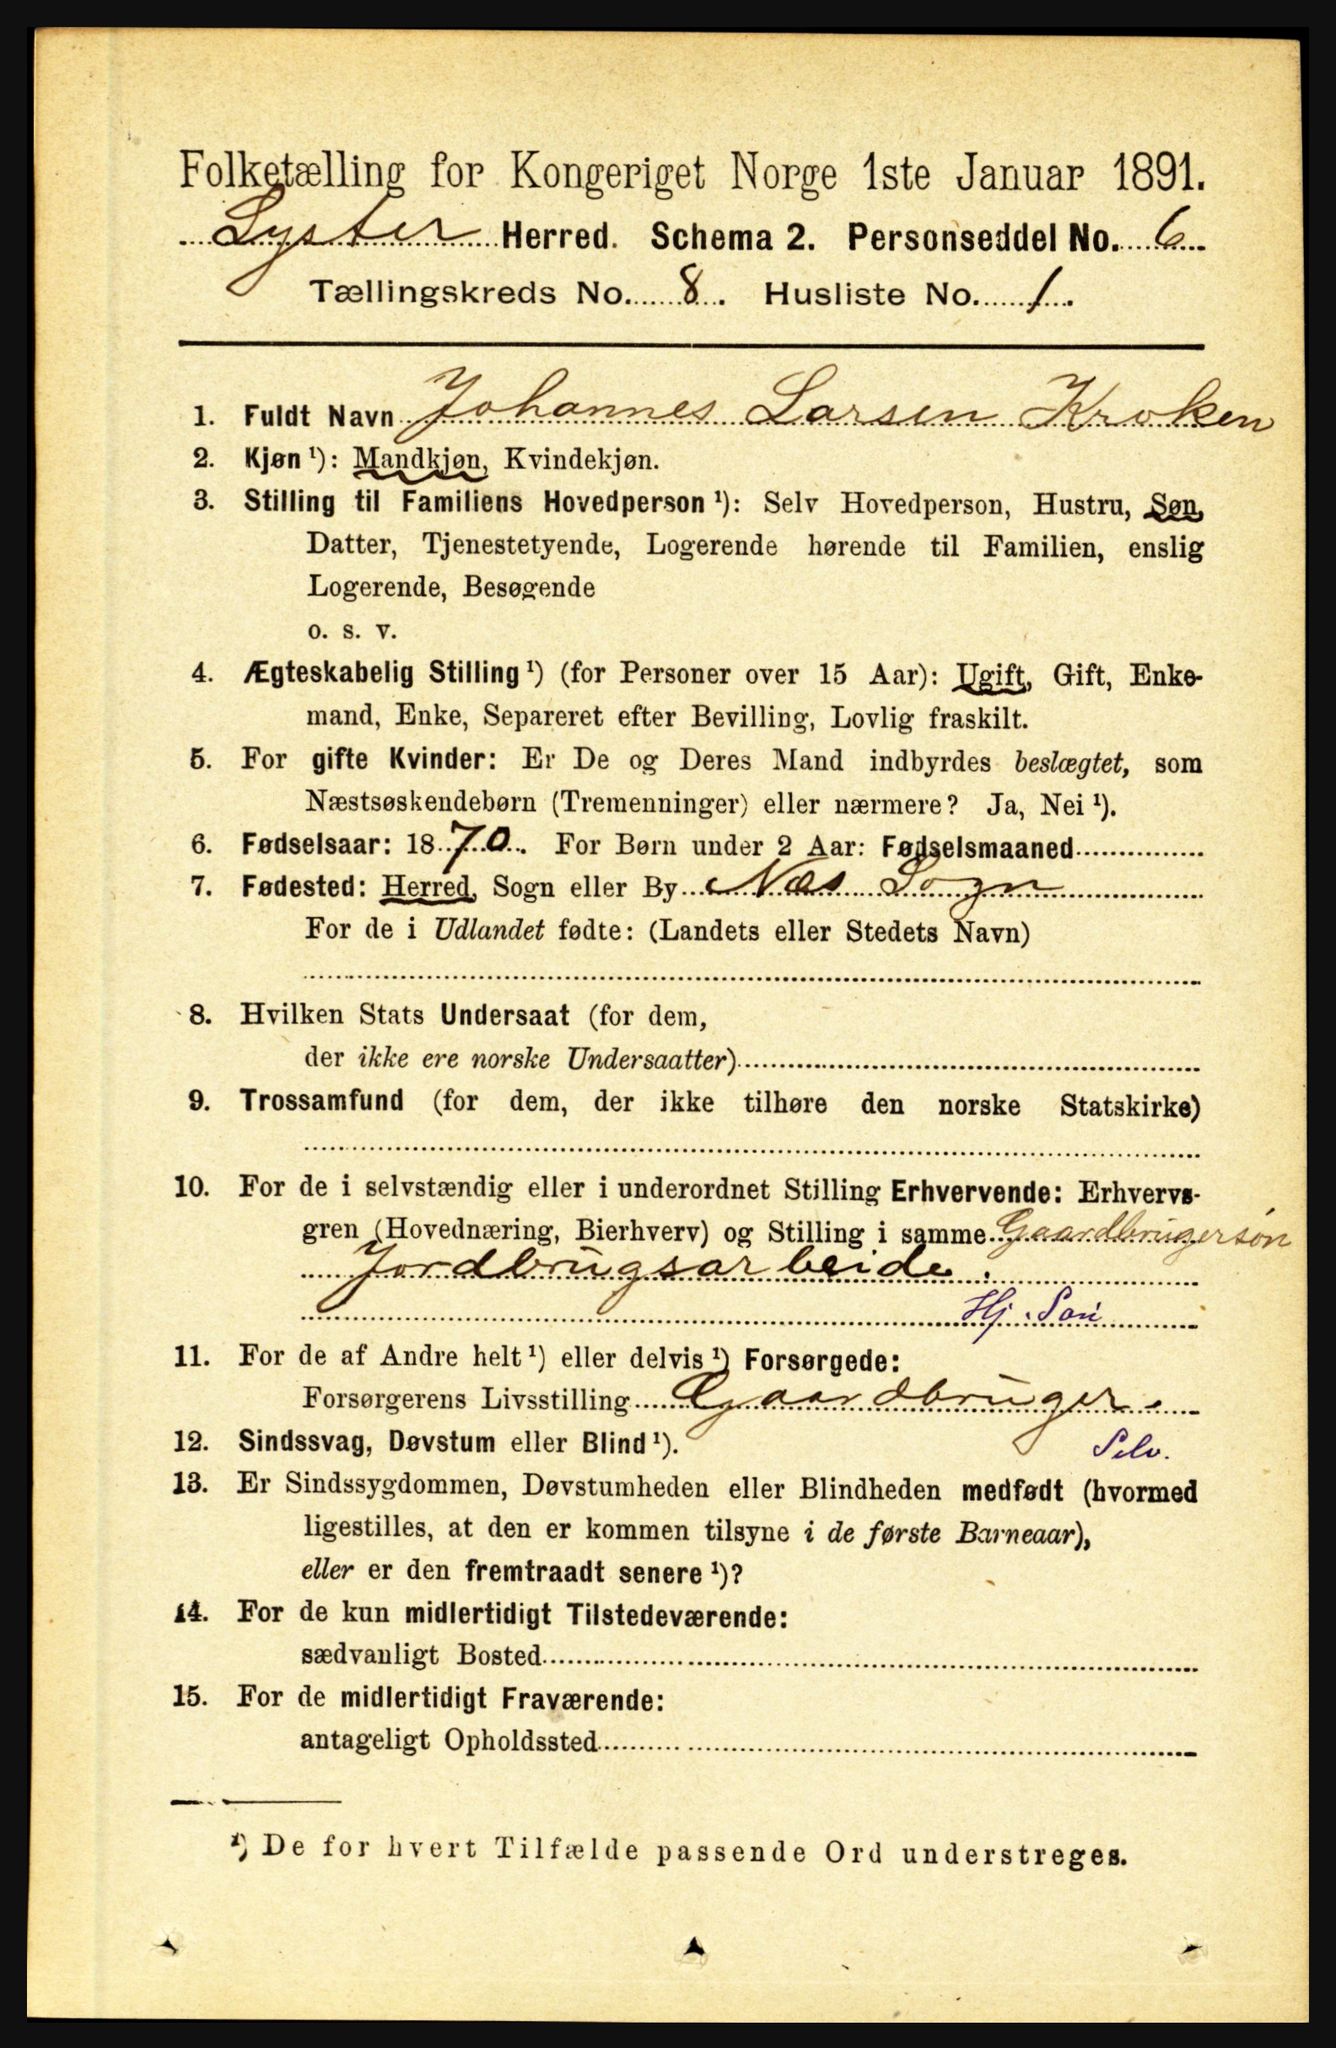 Folketælling for Kongeriget Norge 1ste Januar 1891.
Lyster Herred. Schema 2. Personseddel No. 6
Tællingskreds No. 8. Husliste No. 1.
1. Fuldt Navn Johannes Larsen Kroken
2. Kjøn ¹): Mandkjøn, Kvindekjøn.
3. Stilling til Familiens Hovedperson ¹): Selv Hovedperson, Hustru, Søn,
Datter, Tjenestetyende, Logerende hørende til Familien, enslig
Logerende, Besøgende
o. s. v.
4. Ægteskabelig Stilling ¹) (for Personer over 15 Aar): Ugift, Gift, Enke-
mand, Enke, Separeret efter Bevilling, Lovlig fraskilt.
5. For gifte Kvinder: Er De og Deres Mand indbyrdes beslægtet, som
Næstsøskendebørn (Tremenninger) eller nærmere? Ja, Nei ¹).
6. Fødselsaar: 1870. For Børn under 2 Aar: Fødselsmaaned
7. Fødested: Herred, Sogn eller By Næs Sogn
For de i Udlandet fødte: (Landets eller Stedets Navn)
8. Hvilken Stats Undersaat (for dem,
der ikke ere norske Undersaatter)
9. Trossamfund (for dem, der ikke tilhøre den norske Statskirke)
10. For de i selvstændig eller i underordnet Stilling Erhvervende: Erhvervs-
gren (Hovednæring, Bierhverv) og Stilling i samme Gaardbrugersøn
Jordbrugsarbeide.
Hj. Søn
11. For de af Andre helt ¹) eller delvis ¹) Forsørgede:
Forsørgerens Livsstilling Gaardbruger.
12. Sindssvag, Døvstum eller Blind ¹). Selv.
13. Er Sindssygdommen, Døvstumheden eller Blindheden medfødt (hvormed
ligestilles, at den er kommen tilsyne i de første Barneaar),
eller er den fremtraadt senere ¹)?
14. For de kun midlertidigt Tilstedeværende:
sædvanligt Bosted
15. For de midlertidigt Fraværende:
antageligt Opholdssted
¹) De for hvert Tilfælde passende Ord understreges.